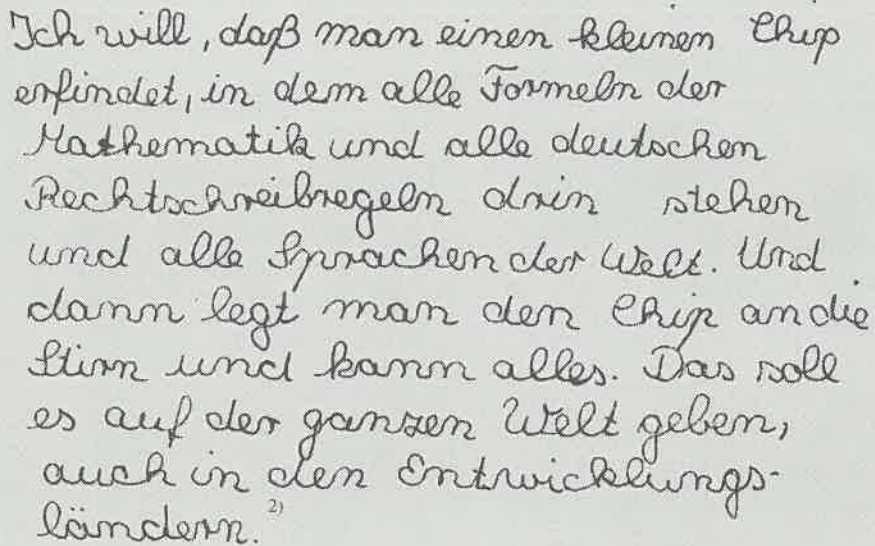 Ich will, daß man einen kleinen Chip
erfindet, in dem alle Formeln der
Mathematik und alle deutschen
Rechtschreibregeln drin stehen
und alle Sprachen der Welt. Und
dann legt man den Chip an die
Stirn und kann alles. Das soll
es auf der ganzen Welt geben,
auch in den Entwicklungs-
ländern. 2)